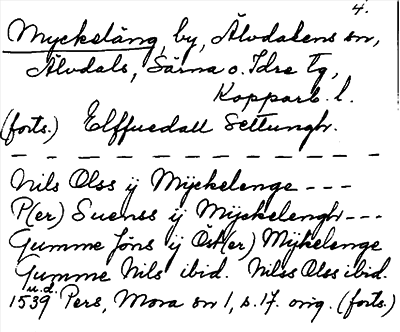 4.
Myckeläng, by, Älvdalens sn,
Älvdals, Särna o. Idre tg,
Kopparb. l.
(forts.) Elffuedall Settungh.
Nils Olss ÿ Mÿckelenge ---
P(er) Suenss ÿ Mÿckelengh ---
Gumme Jöns ÿ Öst(er) Mÿkelenge
Gumme Nils ibid. Nilss Olss ibid.
u.d.
1539 Pers, Mora sn 1, s. 17. orig. (forts.)